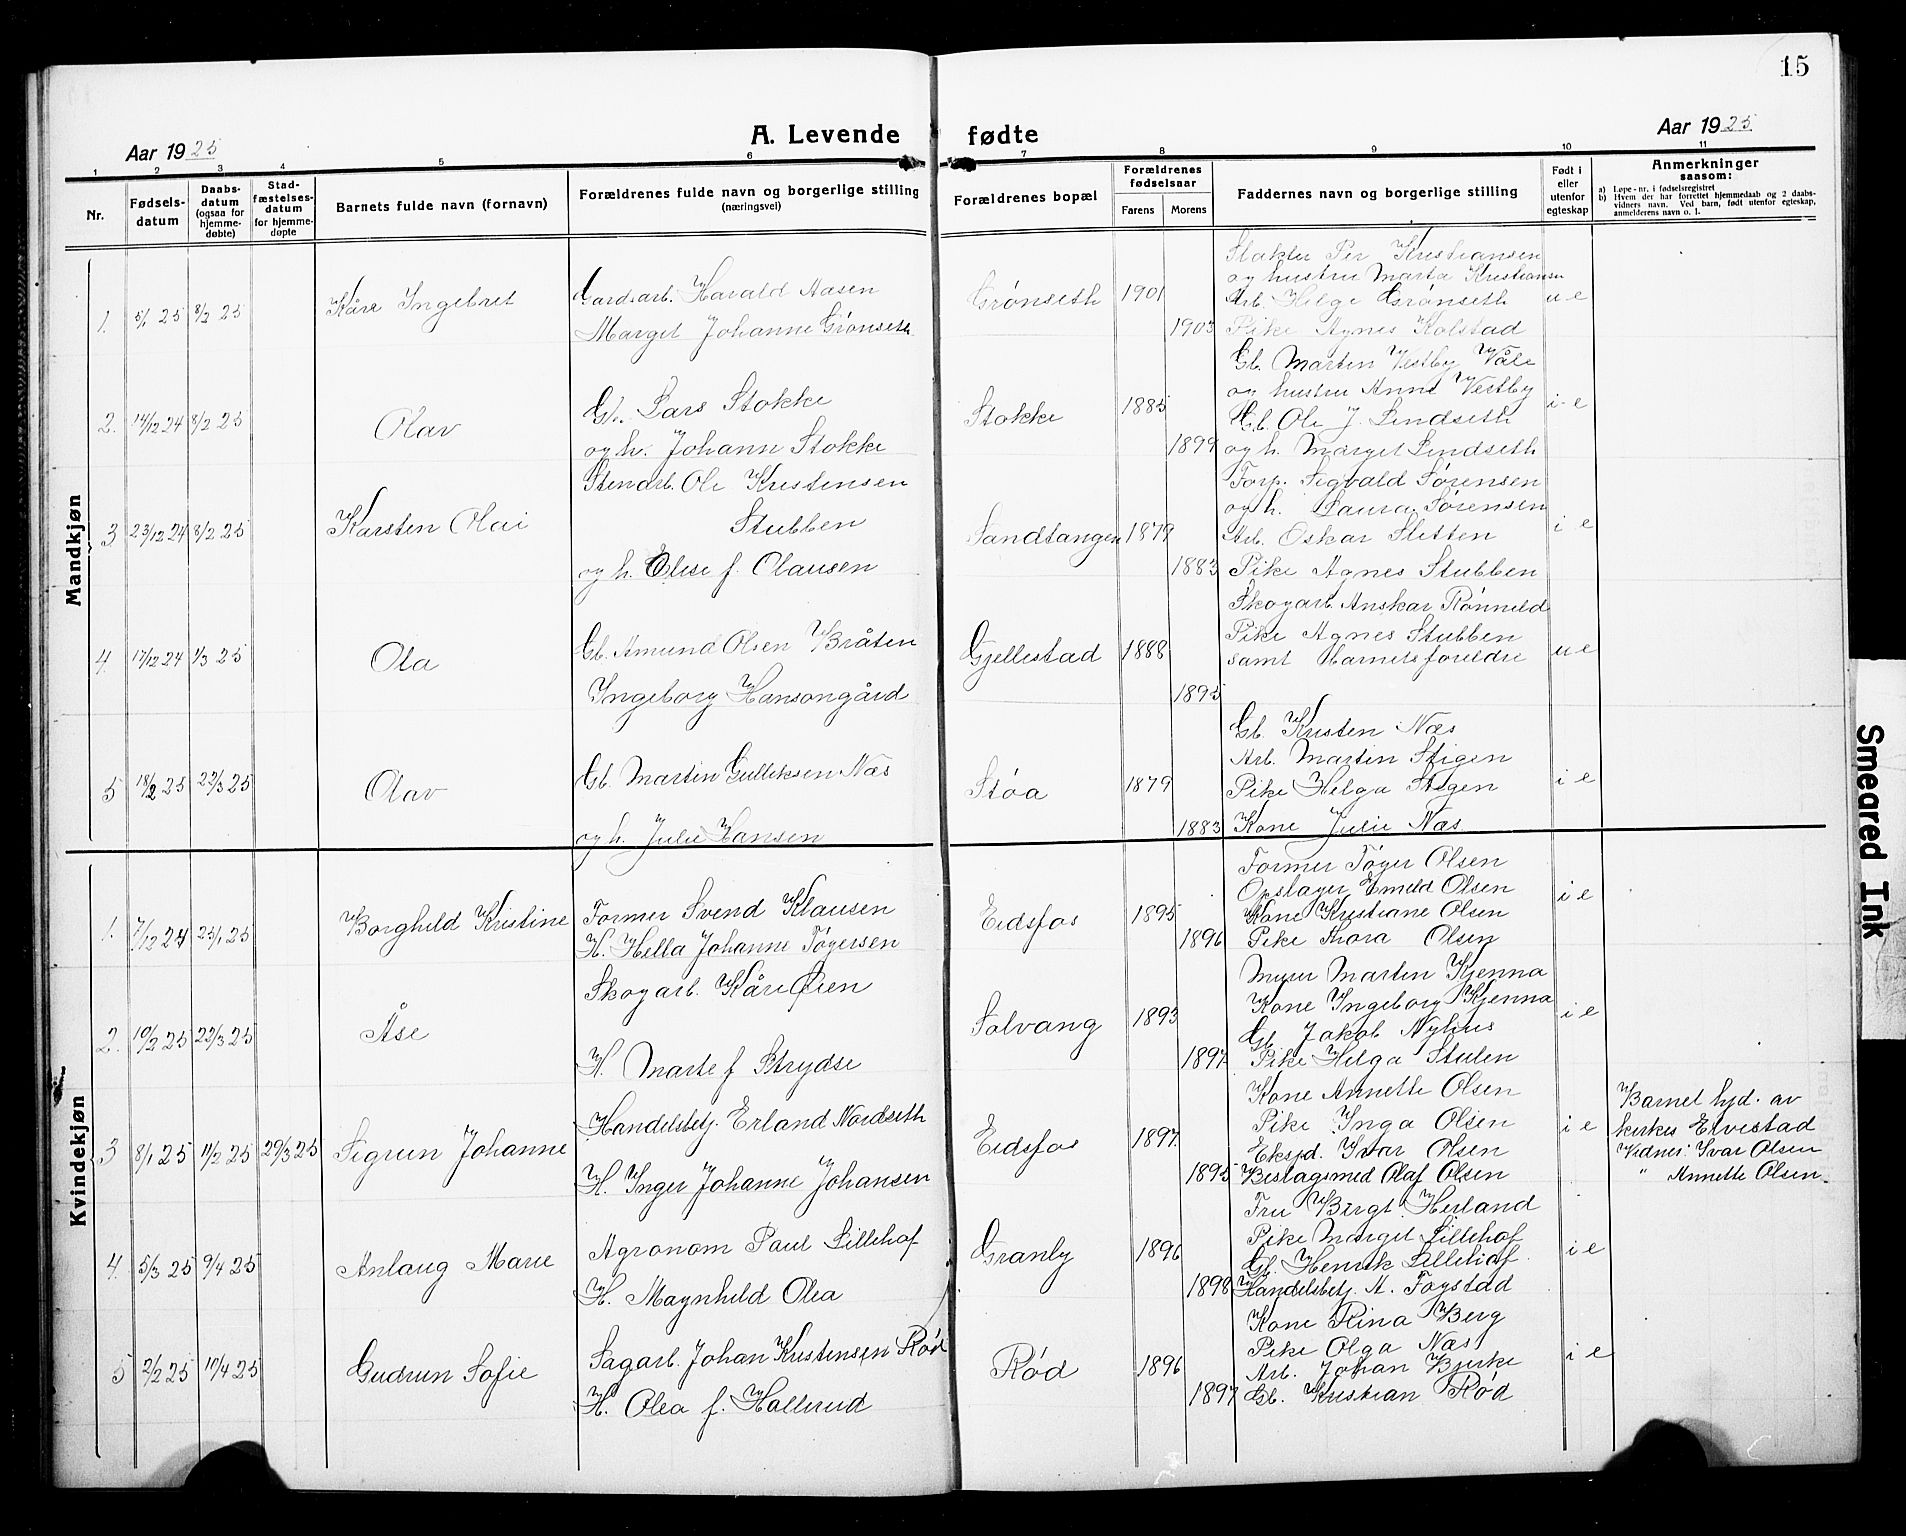 15
A. Levende fødte
Aar 1925
Aar 1925
1 2 3 4 5 6 7 8 9 10 11
Nr.
Fødsels-datum
Daabs-datum (ogsaa for hjemme-døbte)
Stad-fæstelses-datum for hjemme-døpte
Barnets fulde navn (fornavn)
Forældrenes fulde navn og borgerlige stilling (næringsvei)
Forældrenes bopæl
Forældrenes fødselsaar
Farens
Morens
Faddernes navn og borgerlige stilling
Født i eller utenfor egteskap
Anmerkninger saasom:
a) Løpe-nr. i fødselsregistret
b) Hvem der har forrettet hjemmedaab og 2 daabs-vidners navn. Ved barn, født utenfor egteskap, anmelderens navn o. l.
Mandkjøn
1. 5/1 25 8/2 25 Kåre Ingebret
Gardsarb. Harald Aasen
Margit Johanne Grønseth
Grønseth 1901 1903
Slakter Per Kristiansen
og hustru Marta Kristiansen
Arb. Helge Grønseth
Pike Agnes Kolstad
u e
2. 14/12 24 8/2 25 Olav
Gb. Lars Stokke
og h. Johanne Stokke
Stokke 1885 1899
Gb. Martin Vestby Våle
og hustru Anne Vestby
Gb. Ole J. Lindseth
og h. Margit Lindseth
i e
3 23/12 24 8/2 25 Karsten Olai
Stenarb. Ole Kristensen
Stubben
og h. Elise f. Clausen
Sandtangen 1879 1883
Forp. Sigvald Sørensen
og h. Laura Sørensen
Arb. Oskar Sletten
Pike Agnes Stubben
i e
4. 17/12 24 1/3 25 Ola
Gb. Amund Olsen Bråten
Ingeborg Hansongård
Gjellestad 1888 1895
Skogarb. Anskar Rønneld
Pike Agnes Stubben
samt barnets foreldre
u e
5 18/2 25 22/3 25 Olav
Gb. Martin Gulliksen Næs
og h. Julie Hansen
Støa 1879 1883
Gb. Kristen Næs
Arb. Martin Stigen
Pike Helga Stigen
Kone Julie Næs
i e
Kvindekjøn
1. 7/12 24 25/1 25 Borghild Kristine
Former Svend Klausen
H. Hella Johanne Tøgersen
Eidsfos 1895 1896
Former Tøger Olsen
Opslager Emeld Olsen
Kone Kristiane Olsen
Pike Thora Olsen
i e
2. 10/2 25 22/3 25 Åse
Skogarb. Kåre Øien
H. Marte f Strydse
Solvang 1893 1897
Murer Martin Kjenna
Kone Ingeborg Kjenna
Gb. Jakob Nyhus
Pike Helga Stulen
i e
3 8/1 25 11/2 25 29/3 25 Sigrun Johanne
Handelsbetj. Erland Nordseth
H. Inger Johanne Johansen
Eidsfos 1897 1895
Kone Annette Olsen
Pike Inga Olsen
Eksped. Ivar Olsen
Beslagsmed Olaf Olsen
i e
Barnet hjd. av
kirkes. Elvestad
Vidner: Ivar Olsen
" Annette Olsen.
4. 5/3 25 9/4 25 Anlaug Marie
Agronom Paul Lillehof
H. Magnhild Olea
Granly 1896 1898
Fru Birgt. Herland
Pike Margit Lillehof
Gb. Henrik Lillehof
Handelsbetj. A. Fogstad
i e
5 2/2 25 10/4 25 Gudrun Sofie
Sagarb. Johan Kristensen Rød
H. Olea f. Hallerud
Rød 1896 1897
Kone Rina Berg
Pike Olga Næs
Arb. Johan Bjerke
Gb. Kristian Rød
i e
Smeared Ink